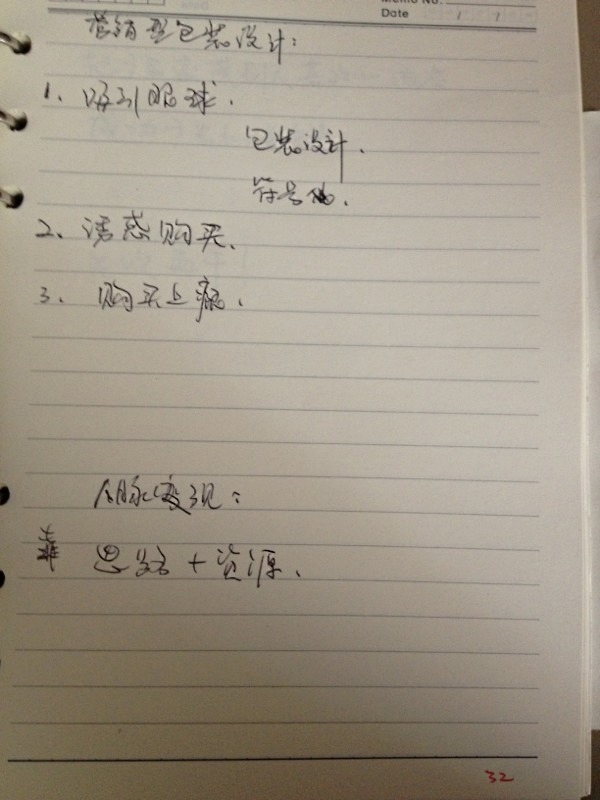 Memo No.
Date / /
营销型包装设计：
1、吸引眼球．
包装设计．
符号化．
2、诱惑购买．
3、购买上瘾．
人脉变现：
靠 思路＋资源．
32